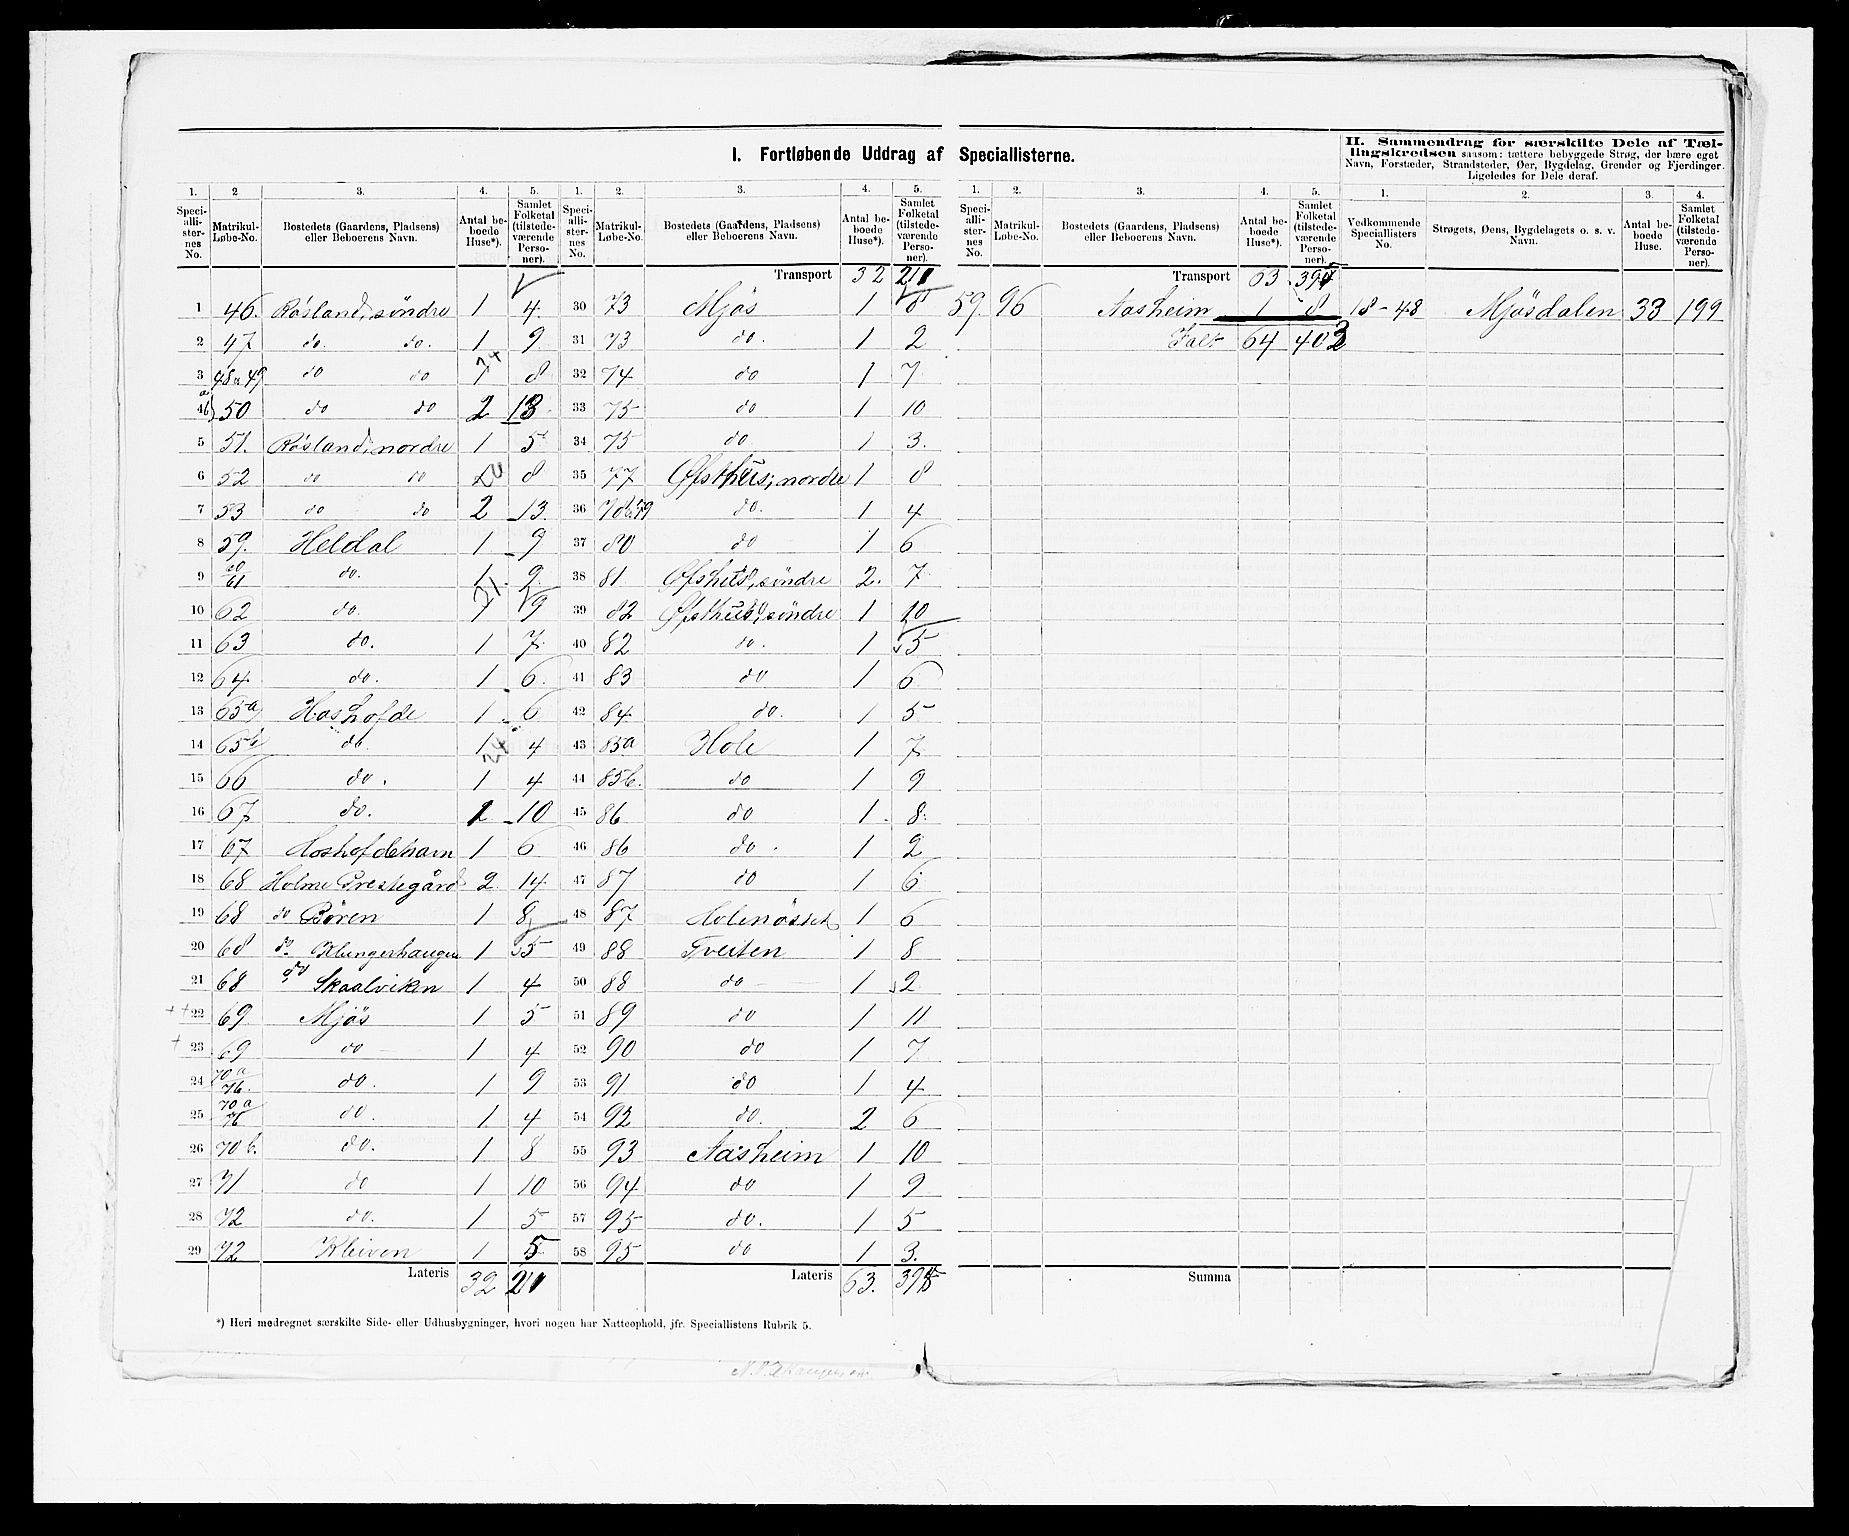 I. Fortløbende Uddrag af Speciallisterne.
II. Sammendrag for særskilte Dele af Tæl-
lingskredsen saasom: tættere bebyggede Strøg, der bære eget
Navn, Forstæder, Strandsteder, Øer, Bygdelag, Grender og Fjerdinger.
Ligeledes for Dele deraf.
1. 2 3. 4. 5. 1. 2. 3. 4. 5. 1. 2. 3. 4. 5. 1. 2. 3. 4.
Speci-alli-ster-nes No. Matrikul-Løbe-No. Bostedets (Gaardens, Pladsens) eller Beboerens Navn. Antal be-boede Huse*). Samlet Folketal (tilstede-værende Perso-ner).
Speci-alli-ster-nes No. Matrikul-Løbe-No. Bostedets (Gaardens, Pladsens) eller Beboerens Navn. Antal be-boede Huse*). Samlet Folketal (tilstede-værende Perso-ner).
Speci-alli-ster-nes No. Matrikul-Løbe-No. Bostedets (Gaardens, Pladsens) eller Beboerens Navn. Antal be-boede Huse*). Samlet Folketal (tilstede-værende Perso-ner).
Vedkommende Speciallisters No. Strøgets, Øens, Bygdelagets o. s. v. Navn. Antal be-boede Huse. Samlet Folketal (tilstede-værende Perso-ner).
1 46. Røsland, söndre 1 4.
2 47 do. do. 1 9
3 48 & 49 do do 1 8
4 a b) 50 do do 2 13
5 51. Røsland, nordre 1 5
6 52 do do 8
7 53 do do 2 13.
8 59. Heldal 1 9
9 60 61 do. 1 9.
10 62 do. 1 9
11 63 do. 1 7.
12 64 do. 1 6.
13 65a Hoshofde 1 6
14 65b do. 1 4
15 66 do. 1 4
16 67 do. 10
17 67 Hoshofdehavn 1 6
18 68 Holme Prestegård 2 14
19 68 do Bören 1 8
20 68 do. Klungerhaugen 1 5
21 68 do Skaalviken 1 4
22 69 Mjös 1 5
23 69 do 1 4
24 70a 76. do. 1 9
25 70a 76 do. 1 4
26 70b. do. 1 8
27 71 do 1 10
28 72 do. 1 5
29 72 Kleiven 1 5
Lateris 32
Transport 32 211
30 73 Mjös 1 8
31 73 do. 1 2
32 74 do 1 7
33 75 do 1 10
34 75 do 1 3.
35 77 Øfsthus, nordre 1 8
36 78 & 79 do. 1 4
37 80 do 1 6
38 81 Øfsthus, söndre 2. 7
39 82 Øfsthus, söndre 1 10
40 82 do. 1 5
41 83 do 1 6
42 84 do. 1 5
43 85a Hole 1 7
44 85b. do 1 9
45 86 do 1 8
46 86 do. 1 2
47 87 do 1 6
48 87 Holenösset 1 6
49 88 Tveiten 1 8
50 88 do 1 2
51 89 do 1 11
52 90 do 1 7
53 91 do 1 4
54 92 do. 2 6
55 93 Aasheim 1 10
56 94 do 1 9
57 95 do. 1 5
58 95 do 1 3.
Lateris 63. 395
Transport 63
59. 96 Aasheim 1 8
Ialt 64 403
Summa
18-48 Mjösdalen 33 199
*) Heri medregnet særskilte Side- eller Udhusbygninger, hvori nogen har Natteophold, jfr. Speciallistens Rubrik 5.